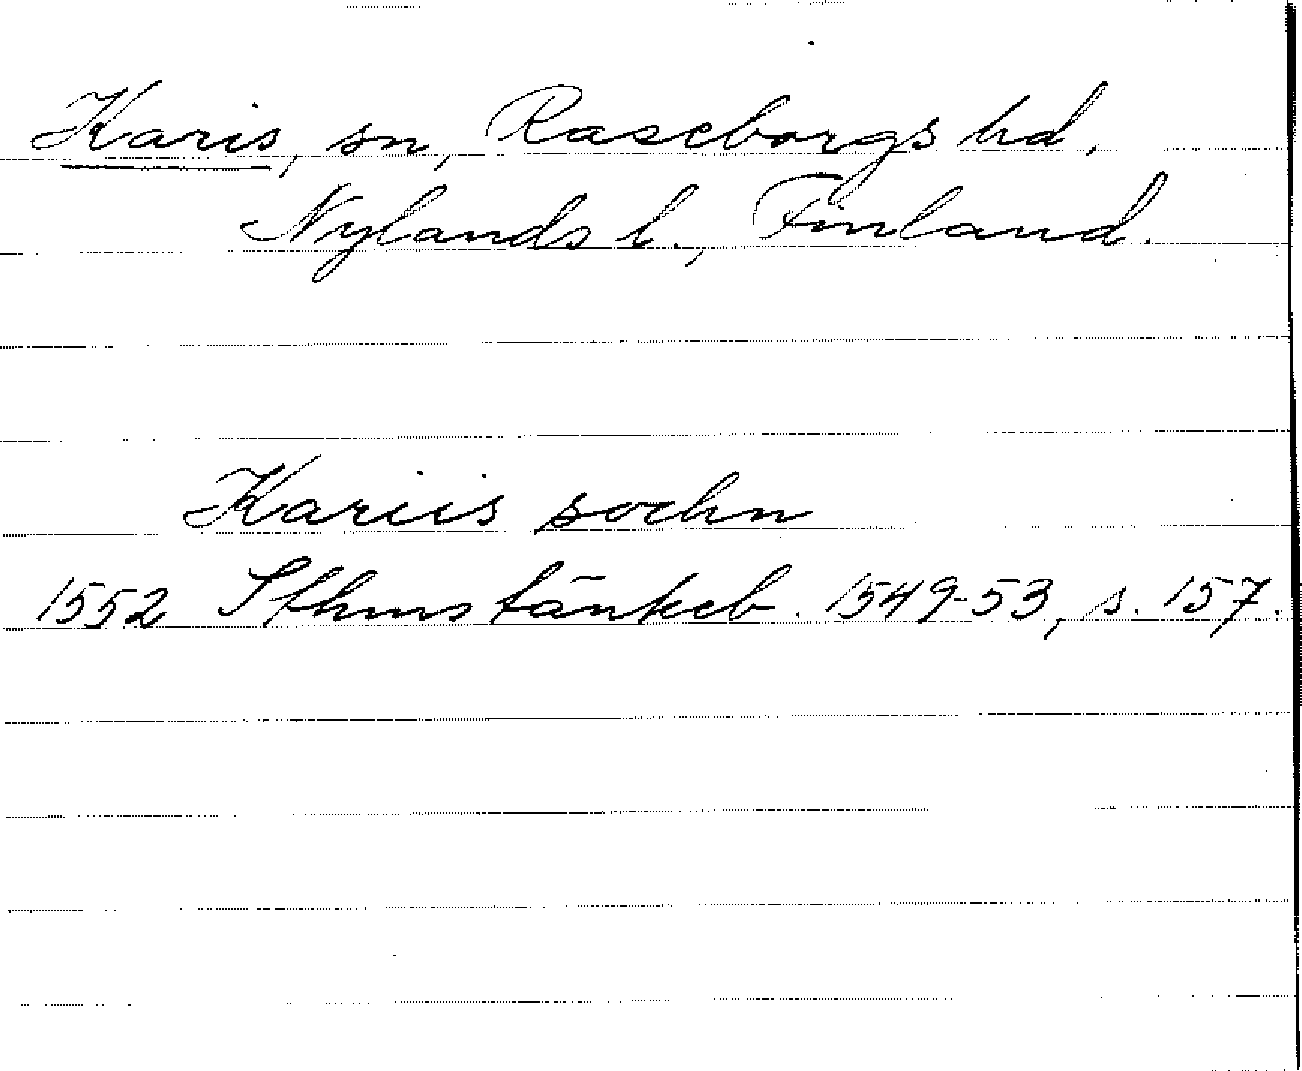 Karis, sn, Raseborgs hd,
Nylands l., Finland.
Kariis sochn
1552 Sthms tänkeb. 1549-53, s. 157.